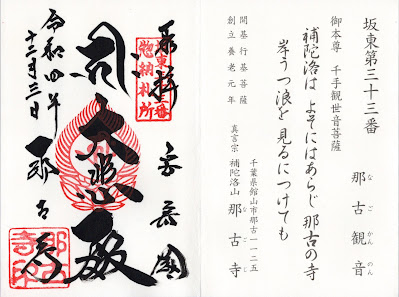 坂東第三十三番
那古観音
なごかんのん
御本尊 千手観世音菩薩
補陀洛は よそにはあらじ 那古の寺
岸うつ浪を 見るにつけても
開基行基菩薩
創立養老元年
千葉県館山市那古一一二五
真言宗 補陀洛山 那古寺
なごじ
奉拝
惣納札所
大悲殿
令和四年
十二月三日
那古寺